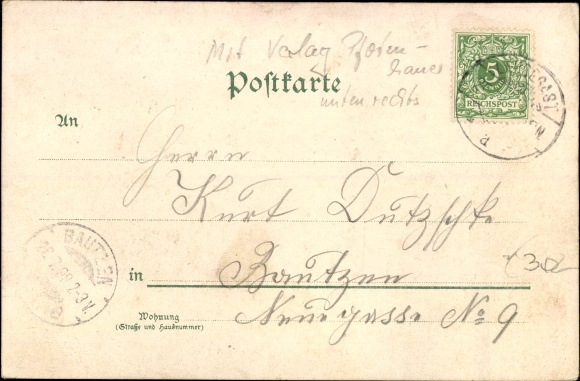 Mit Verlag Pfoten-
hauer
unten rechts
Postkarte
5
REICHSPOST
An
Herrn
Kurt Dutzschke
in Bautzen
Neuegasse No 9
Wohnung
(Straße und Hausnummer)
BAUTZEN